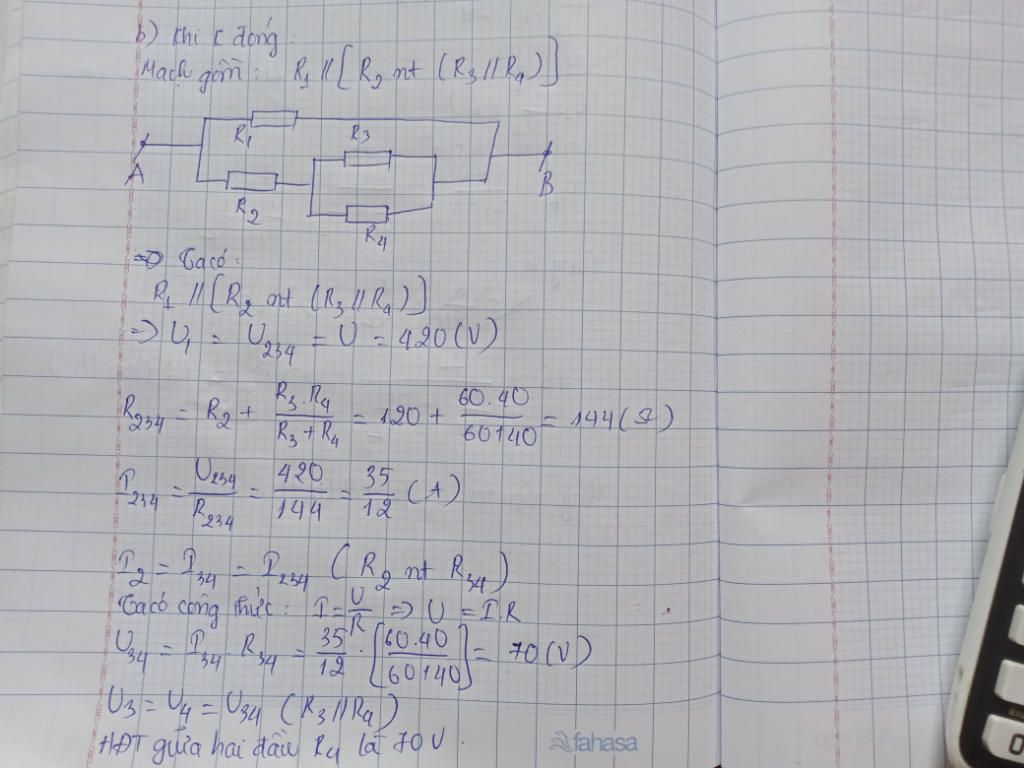 b) Khi K đóng:
Mạch gồm: R₁ // [R₂ nt (R₃ // R₄)]
R₁
R₃
A
B
R₂
R₄
=> Ta có:
R₁ // [R₂ nt (R₃ // R₄)]
=> U₁ = U₂₃₄ = U = 420 (V)
R₂₃₄ = R₂ + R₃.R₄/(R₃+R₄) = 120 + 60.40/(60+40) = 144 (Ω)
I₂₃₄ = U₂₃₄/R₂₃₄ = 420/144 = 35/12 (A)
I₂ = I₃₄ = I₂₃₄ (R₂ nt R₃₄)
Ta có công thức: I = U/R => U = I.R
U₃₄ = I₃₄ . R₃₄ = 35/12 . [60.40/(60+40)] = 70 (V)
U₃ = U₄ = U₃₄ (R₃ // R₄)
HĐT giữa hai đầu R₄ là 70 V.
fahasa
0